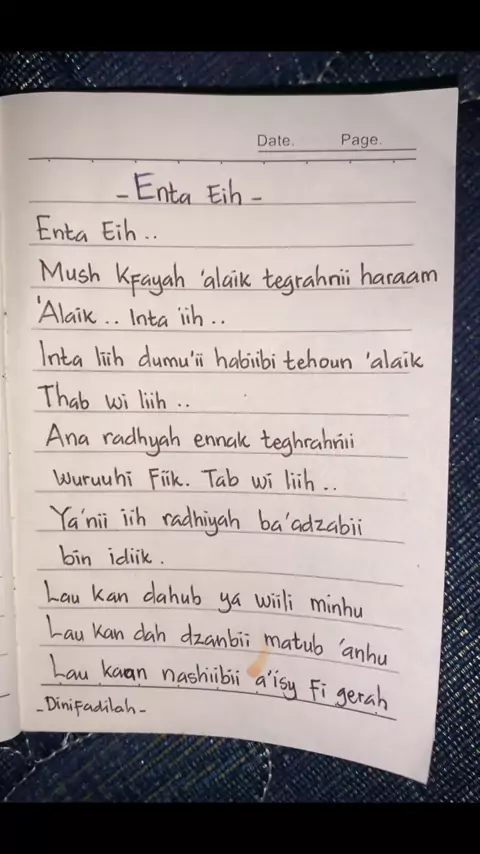 Date. Page.
- Enta Eih -
Enta Eih ..
Mush Kfayah 'alaik tegrahnii haraam
'Alaik .. Inta 'iih ..
Inta liih dumu'ii habiibi tehoun 'alaik
Thab wi liih ..
Ana radhyah ennak teghrahnii
wuruuhi Fiik. Tab wi liih ..
Ya'nii iih radhiyah ba'adzabii
bin idiik.
Lau kan dahub ya wiili minhu
Lau kan dah dzanbii matub 'anhu
Lau kaan nashiibii a'isy Fi gerah
- Dinifadilah -